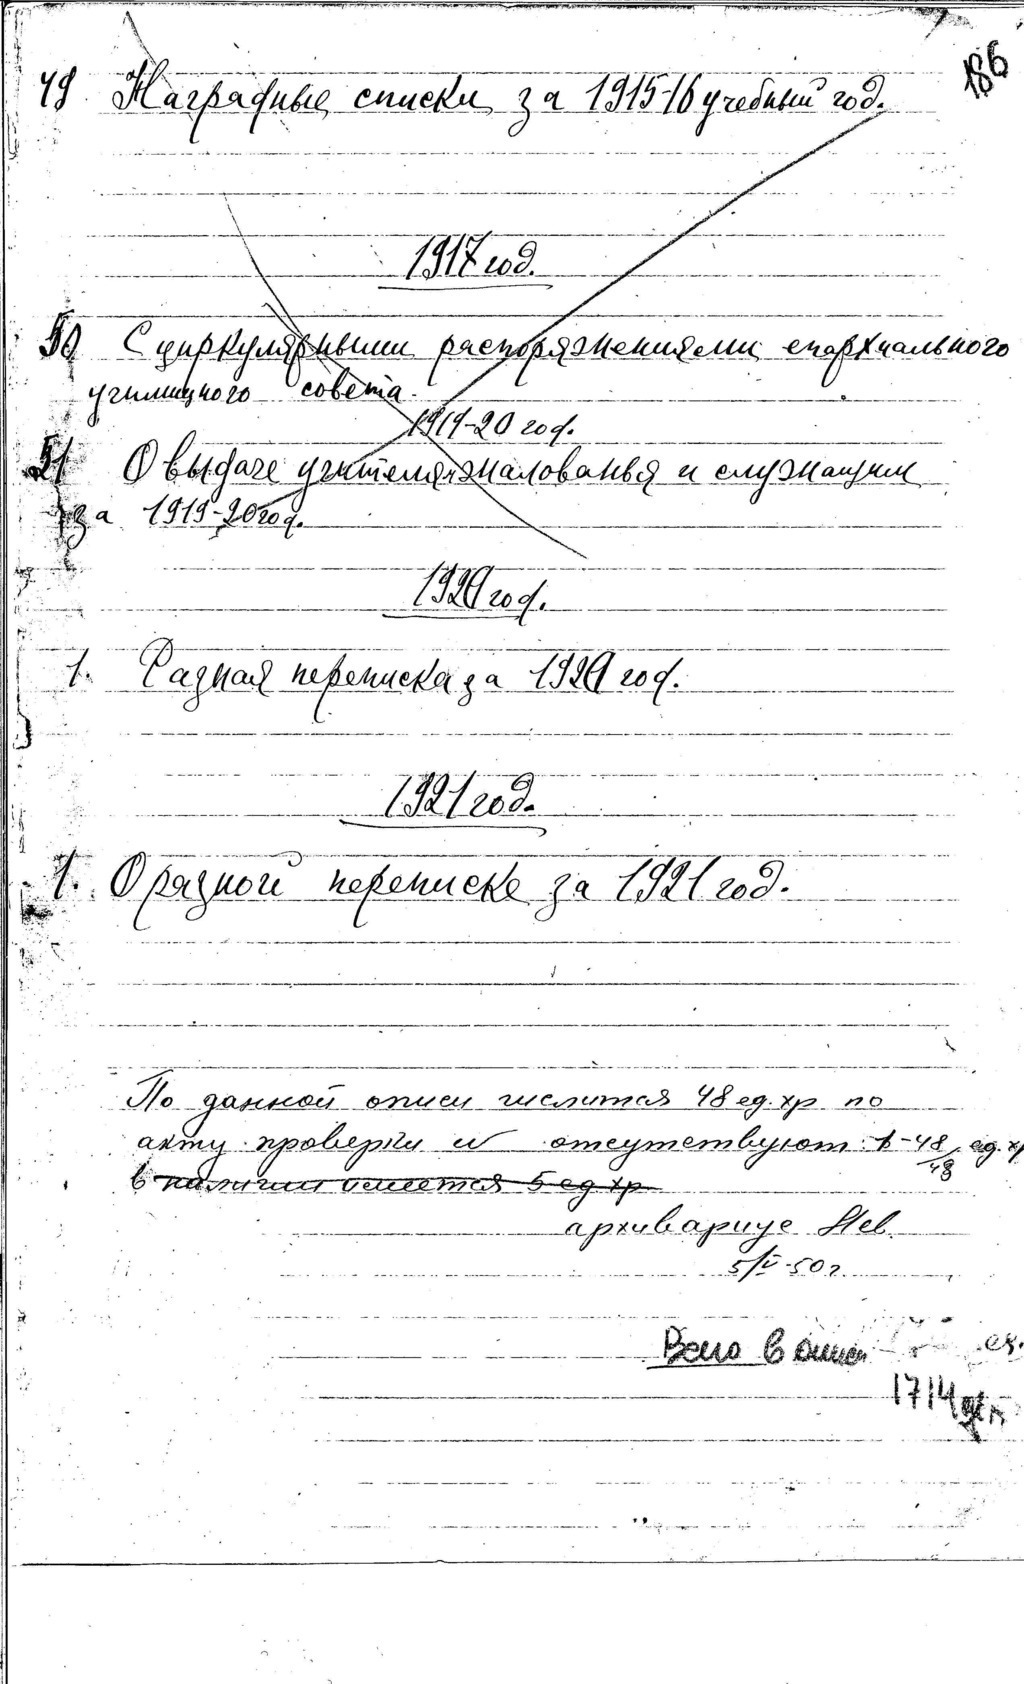 186
49 Наградные списки за 1915-16 учебный год.
1917 год.
50 С циркулярными распоряжениями епархиального
училищного совета.
1919-20 год.
51 О выдаче учителям жалованья и служащим
за 1919-20 год.
1920 год.
1. Разная переписка за 1920 год.
1921 год.
1. О разной переписке за 1921 год.
По данной описи числится 48 ед. хр по
акту проверки отсутствуют 1-48 ед. хр
48
в наличии имеется 5 ед хр
архивариус
5/V-50 г.
Всего в описи
1714